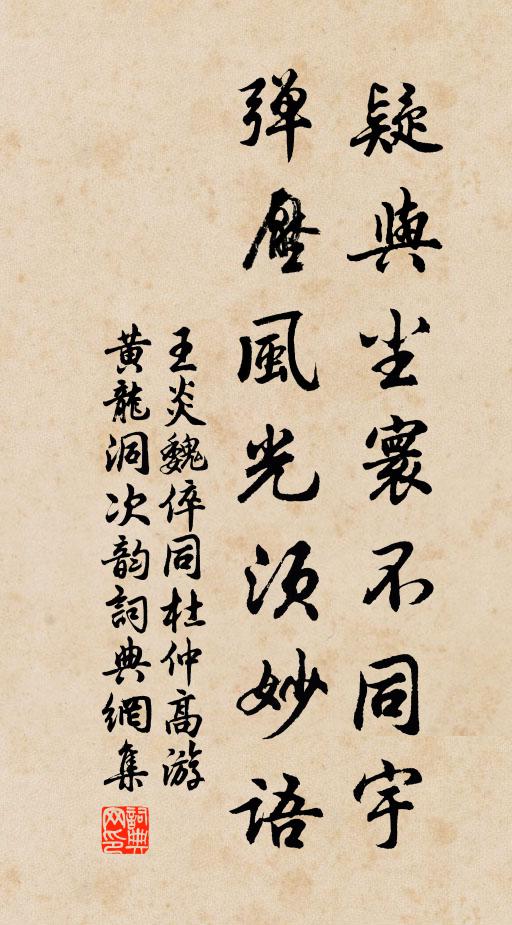 疑與尘寰不同宇
弹壓風光須妙語
王炎魏倅同杜仲高游
黄龍洞次韵詞典網集
詞典网印